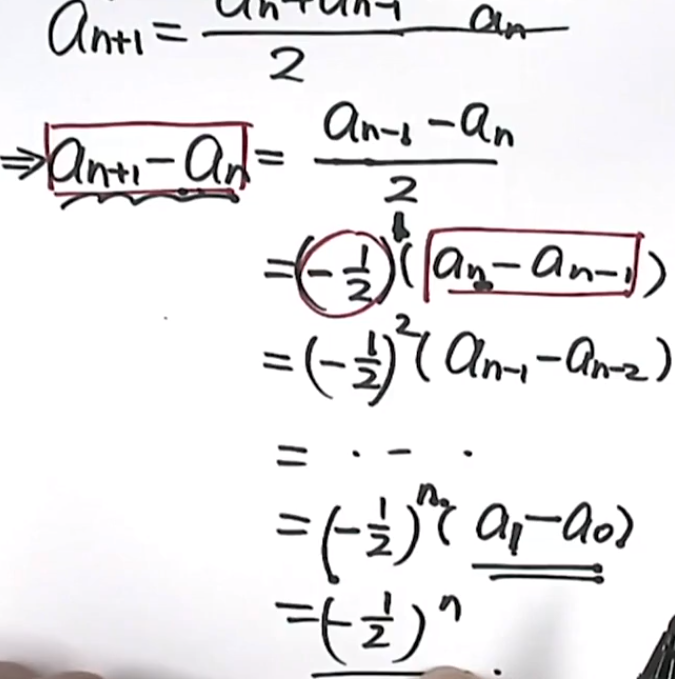 aₙ₊₁ = (aₙ + aₙ₋₁)/2 aₙ
⇒ aₙ₊₁ − aₙ = (aₙ₋₁ − aₙ)/2
= (−1/2)¹ (aₙ − aₙ₋₁)
= (−1/2)² (aₙ₋₁ − aₙ₋₂)
= · − ·
= (−1/2)ⁿ (a₁ − a₀)
= (−1/2)ⁿ .